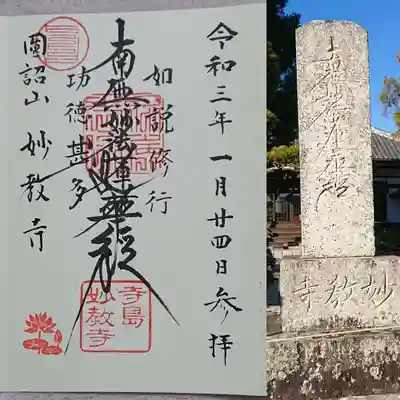 令和三年一月廿四日参拝
如説修行
南無妙法蓮華経
功徳甚多
圓詔山 妙教寺
寺島
妙教寺
南無妙法蓮華経
妙教寺